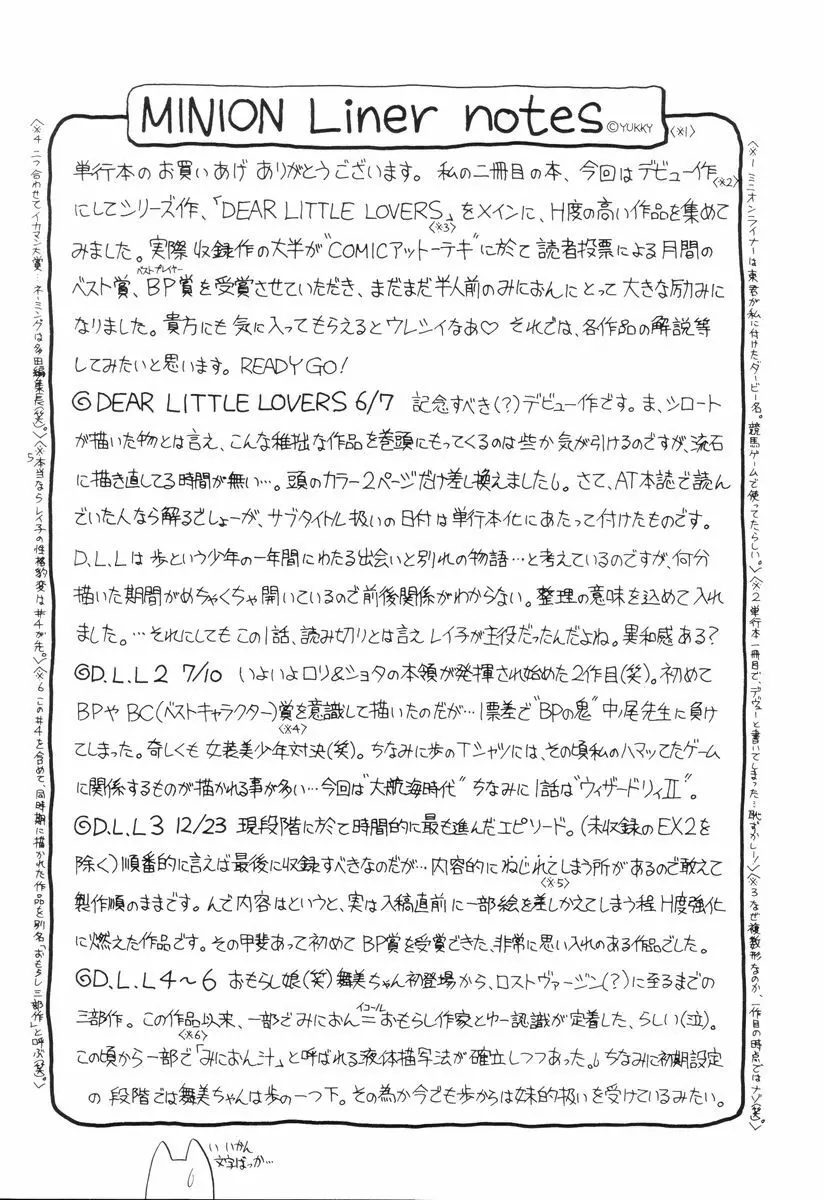 MINION Liner notes ©YUKKY 〈※1〉
単行本のお買いあげありがとうございます。私の二冊目の本、今回はデビュー作〈※2〉
にしてシリーズ作、「DEAR LITTLE LOVERS」をメインに、H度の高い作品を集めて
みました。実際収録作の大半が〈※3〉"COMICアットーテキ"に於て読者投票による月間の
ベスト賞、BP賞(ベストプレイヤー)を受賞させていただき、まだまだ半人前のみにおんにとって大きな励みに
なりました。貴方にも気に入ってもらえるとウレシイなあ♡ それでは、各作品の解説等
してみたいと思います。READY GO!
◎DEAR LITTLE LOVERS 6/7 記念すべき(?)デビュー作です。ま、シロート
が描いた物とは言え、こんな稚拙な作品を巻頭にもってくるのは些か気が引けるのですが、流石
に描き直してる時間が無い…。頭のカラー2ページだけ差し換えました。さて、AT本誌で読ん
でいた人なら解るでしょーが、サブタイトル扱いの日付は単行本化にあたって付けたものです。
D.L.Lは歩という少年の一年間にわたる出会いと別れの物語…と考えているのですが、何分
描いた期間がめちゃくちゃ開いているので前後関係がわからない。整理の意味を込めて入れ
ました。…それにしてもこの1話、読み切りとは言えレイ子が主役だったんだよね。異和感ある?
◎D.L.L2 7/10 いよいよロリ&ショタの本領が発揮され始めた2作目(笑)。初めて
BPやBC(ベストキャラクター)賞を意識して描いたのだが…1票差で"BPの鬼"中ノ尾先生に負け
てしまった。奇しくも〈※4〉女装美少年対決(笑)。ちなみに歩のTシャツには、その頃私のハマッてたゲーム
に関係するものが描かれる事が多い…今回は"大航海時代"ちなみに1話は"ウィザードリィII"。
◎D.L.L3 12/23 現段階に於て時間的に最も進んだエピソード。(未収録のEX2を
除く)順番的に言えば最後に収録すべきなのだが…内容的にねじれてしまう所があるので敢えて
製作順のままです。んで内容はというと、実は入稿直前に一部絵を差しかえてしまう程〈※5〉H度強化
に燃えた作品です。その甲斐あって初めてBP賞を受賞できた、非常に思い入れのある作品でした。
◎D.L.L4〜6 おもらし娘(笑)舞美ちゃん初登場から、ロストヴァージン(?)に至るまでの
三部作。この作品以来、一部でみにおん=(イコール)おもらし作家とゆー認識が定着した、らしい(泣)。
この頃から一部で〈※6〉「みにおん汁」と呼ばれる液体描写法が確立しつつあった。ちなみに初期設定
の段階では舞美ちゃんは歩の一つ下。その為か今でも歩からは妹的扱いを受けているみたい。
〈※1 ミニオンライナーは東君が私に付けたダービー名。競馬ゲームで使ってたらしい。〉〈※2 単行本一冊目で、デヴューと書いてしまった…恥ずかしー!〉〈※3 なぜ複数形なのか、一作目の時点ではナゾ(笑)。〉
〈※4 二つ合わせてイカマン大賞…ネーミングは多田編集長(笑)。〉〈※5 本当ならレイ子の性格豹変は#4が先。〉〈※6 この#4を含めて、同時期に描かれた作品を別名「おもらし三部作」と呼ぶ(笑)。〉
いいかん
文字ばっか…